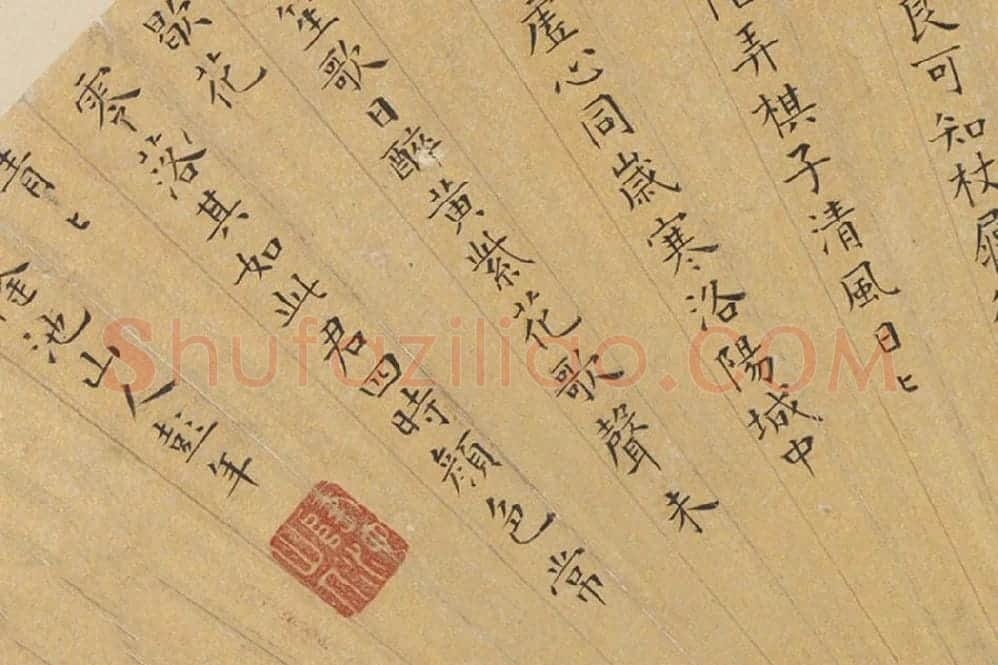 良可知杖屨
弄棋子清風日〻
虛心同歲寒洛陽城中
笙歌日醉黄紫花歌聲未
歇花
零落其如此君四時顔色常
青〻
隆池山人彭年
Shufaziliao.COM